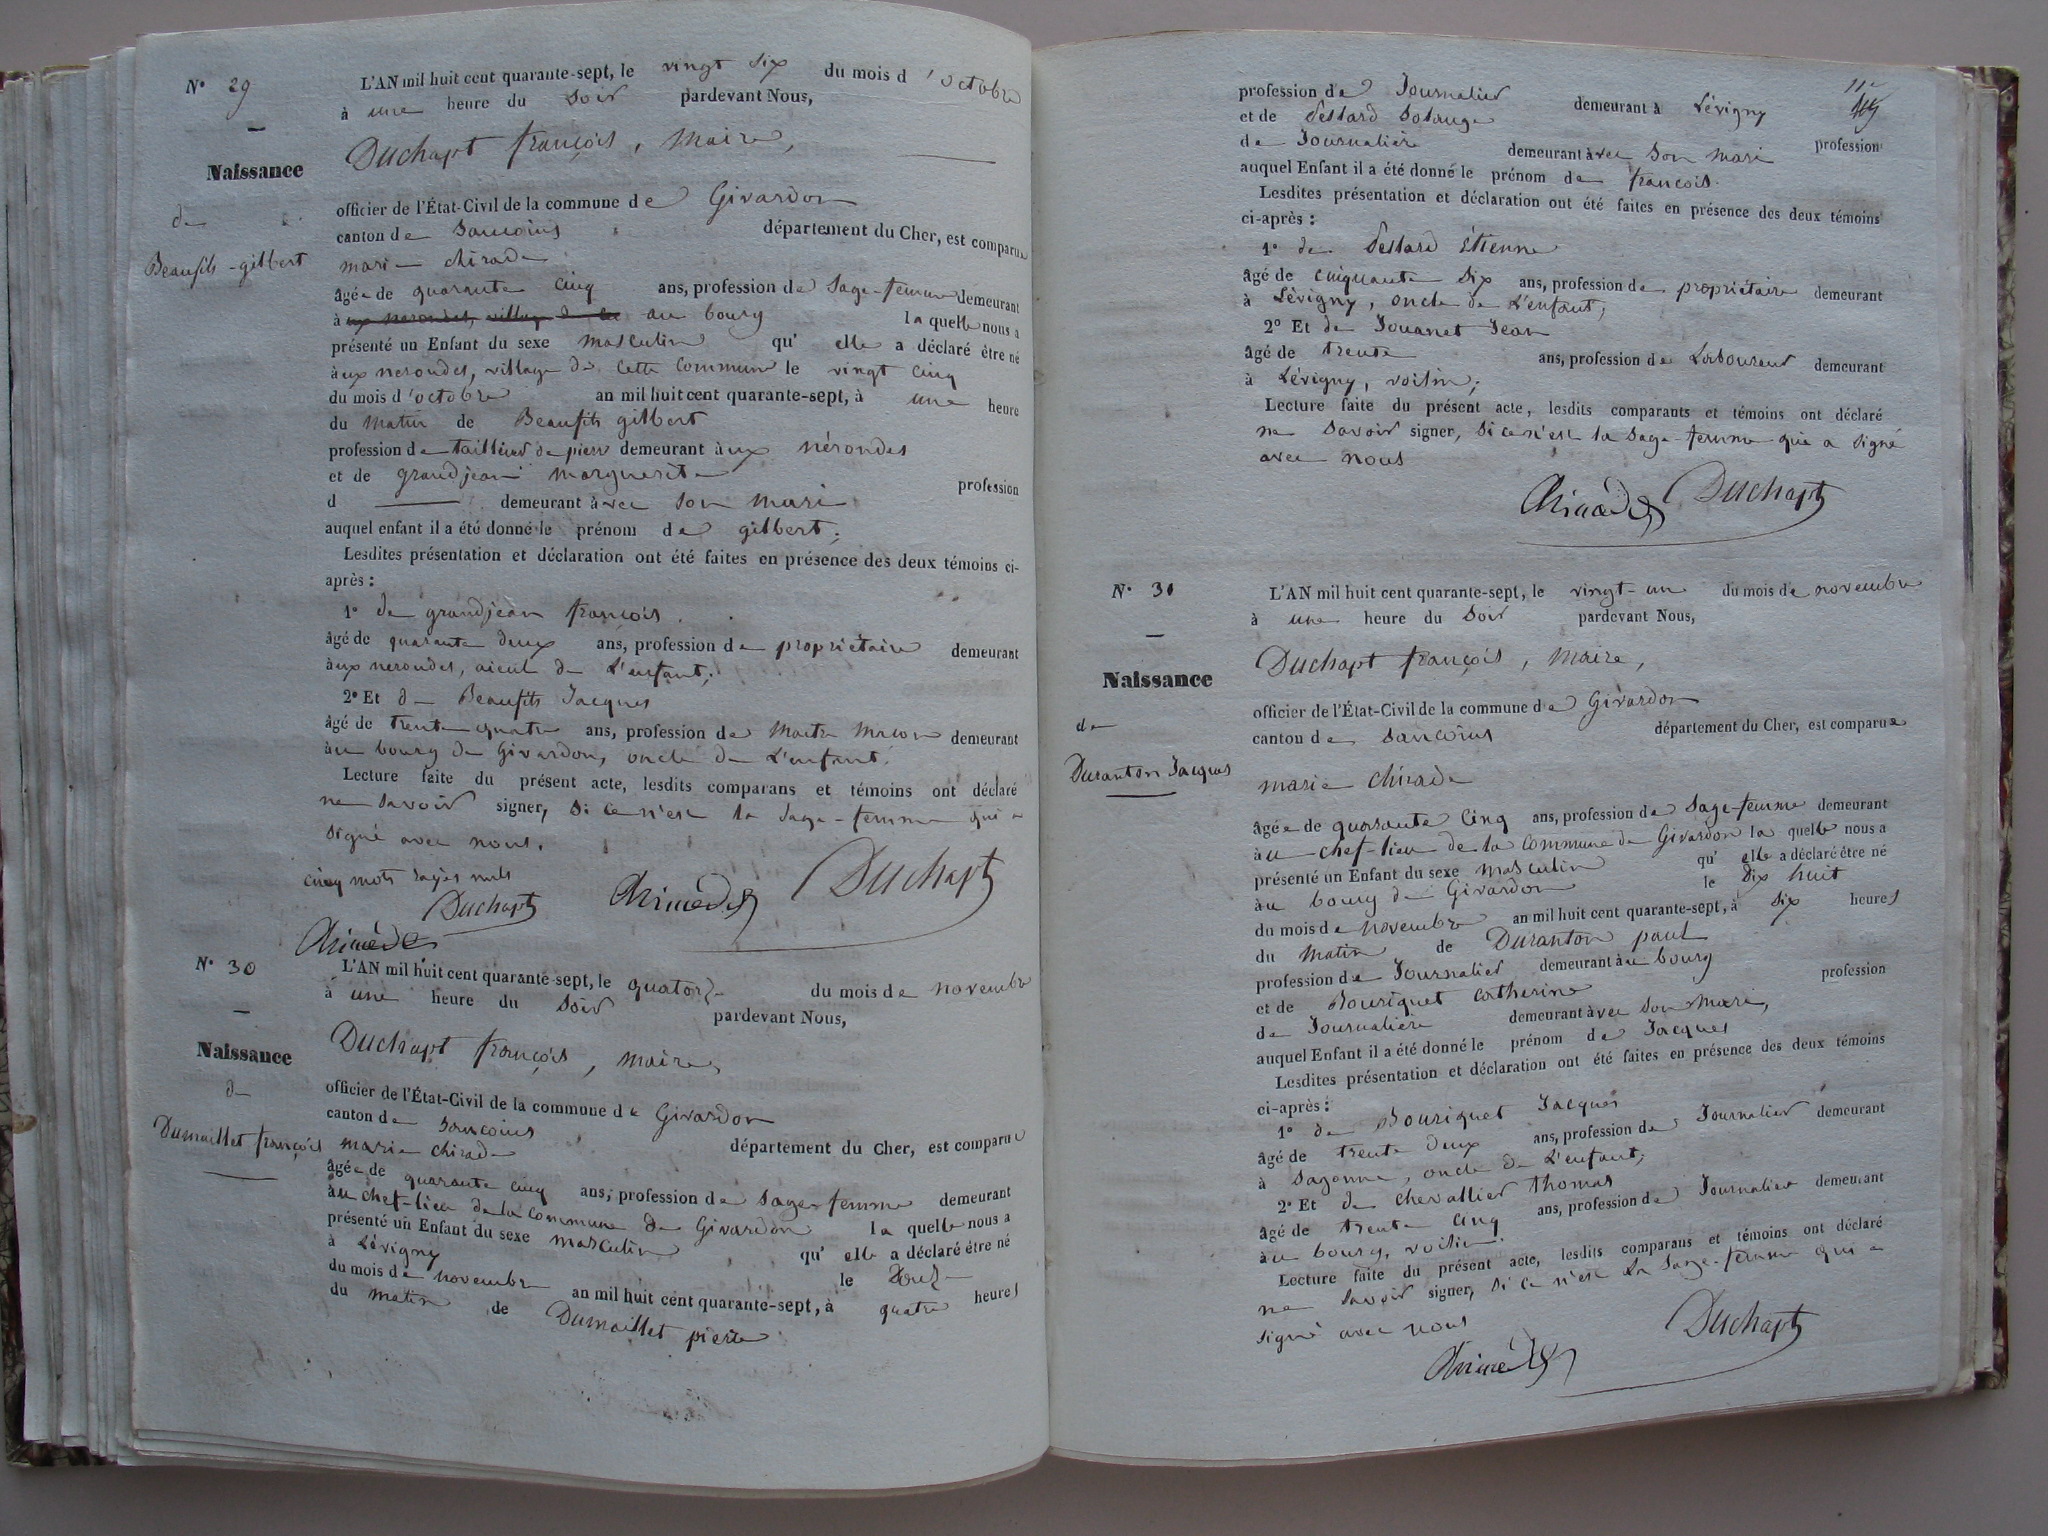 N° 29
Naissance
de
Beaufils - gilbert
L'AN mil huit cent quarante-sept, le vingt six du mois d'octobre
à une heure du Soir pardevant Nous,
Duchapt françois, maire,
officier de l'État-Civil de la commune de Givardon
canton de Sancoins département du Cher, est comparue
marie chirade
âgée de quarante cinq ans, profession de Sage-femme demeurant
à aux nerondes, village de au bourg laquelle nous a
présenté un Enfant du sexe masculin qu'elle a déclaré être né
aux nerondes, village de cette commune le vingt cinq
du mois d'octobre an mil huit cent quarante-sept, à une heure
du matin de Beaufils gilbert
profession de tailleur de pierr demeurant aux nérondes
et de grandjean marguerite profession
d demeurant avec son mari
auquel enfant il a été donné le prénom de gilbert;
Lesdites présentation et déclaration ont été faites en présence des deux témoins ci-
après :
1° de grandjean françois
âgé de quarante deux ans, profession de propriétaire demeurant
aux nerondes, aieul de L'enfant;
2° Et de Beaufils Jacques
âgé de trente quatre ans, profession de Maitre Macon demeurant
au bourg de Givardon, oncle de L'enfant;
Lecture faite du présent acte, lesdits comparans et témoins ont déclaré
ne savoir signer, si ce n'est la Sage-femme qui a
signé avec nous.
cinq mots rayés nuls
Duchapt
Chirade
Chirade Duchapt
N° 30
Naissance
de
Dumaillet françois
L'AN mil huit cent quarante-sept, le quatorze du mois de novembre
à une heure du Soir pardevant Nous,
Duchapt françois, maire,
officier de l'État-Civil de la commune de Givardon
canton de Sancoins département du Cher, est comparue
marie chirade
âgée de quarante cinq ans, profession de Sage-femme demeurant
au chef-lieu de la commune de Givardon laquelle nous a
présenté un Enfant du sexe masculin qu'elle a déclaré être né
à Lévigny le douze
du mois de novembre an mil huit cent quarante-sept, à quatre heures
du matin de Dumaillet pierre
11e
profession de Journalier demeurant à Lévigny
et de Dessard Solange profession
de Journalière demeurant avec son mari
auquel Enfant il a été donné le prénom de françois.
Lesdites présentation et déclaration ont été faites en présence des deux témoins
ci-après :
1° de Dessard Étienne
âgé de cinquante six ans, profession de propriétaire demeurant
à Lévigny, oncle de L'enfant;
2° Et de Jouanet Jean
âgé de trente ans, profession de Laboureur demeurant
à Lévigny, voisin;
Lecture faite du présent acte, lesdits comparants et témoins ont déclaré
ne savoir signer, si ce n'est la sage-femme qui a signé
avec nous
Chirade Duchapt
N° 31
Naissance
de
Duranton Jacques
L'AN mil huit cent quarante-sept, le vingt-un du mois de novembre
à une heure du Soir pardevant Nous,
Duchapt françois, maire,
officier de l'État-Civil de la commune de Givardon
canton de Sancoins département du Cher, est comparue
marie chirade
âgée de quarante cinq ans, profession de Sage-femme demeurant
au chef-lieu de la commune de Givardon laquelle nous a
présenté un Enfant du sexe masculin qu'elle a déclaré être né
au bourg de Givardon le dix huit
du mois de novembre an mil huit cent quarante-sept, à six heures
du matin de Duranton paul
profession de Journalier demeurant au bourg
et de Bouriquet catherine profession
de Journalière demeurant avec son mari,
auquel Enfant il a été donné le prénom de Jacques
Lesdites présentation et déclaration ont été faites en présence des deux témoins
ci-après :
1° de Bouriquet Jacques
âgé de trente deux ans, profession de Journalier demeurant
à Sagonne, oncle de L'enfant;
2° Et de chevallier thomas
âgé de trente cinq ans, profession de Journalier demeurant
au bourg, voisin.
Lecture faite du présent acte, lesdits comparans et témoins ont déclaré
ne savoir signer, si ce n'est La Sage-femme qui a
signé avec nous
Chirade Duchapt